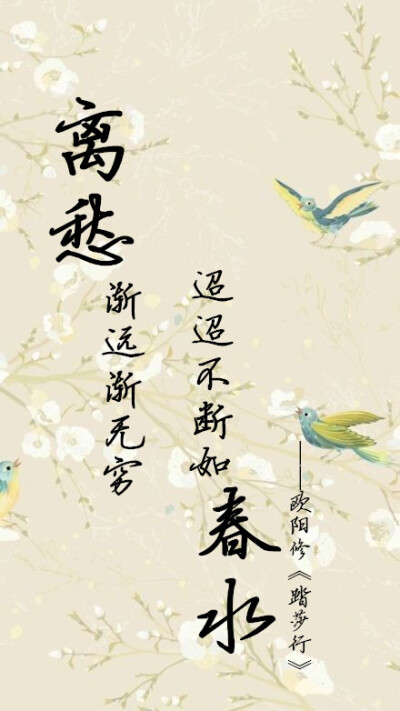 离愁渐远渐无穷
迢迢不断如春水
——欧阳修《踏莎行》